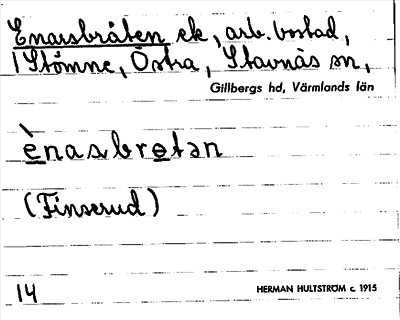 Enarsbråten ek, arb. bostad,
1 Stömne, Östra, Stavnäs sn,
Gillbergs hd, Värmlands län
ènasbrotən
(Finserud)
14
HERMAN HULTSTRÖM c. 1915